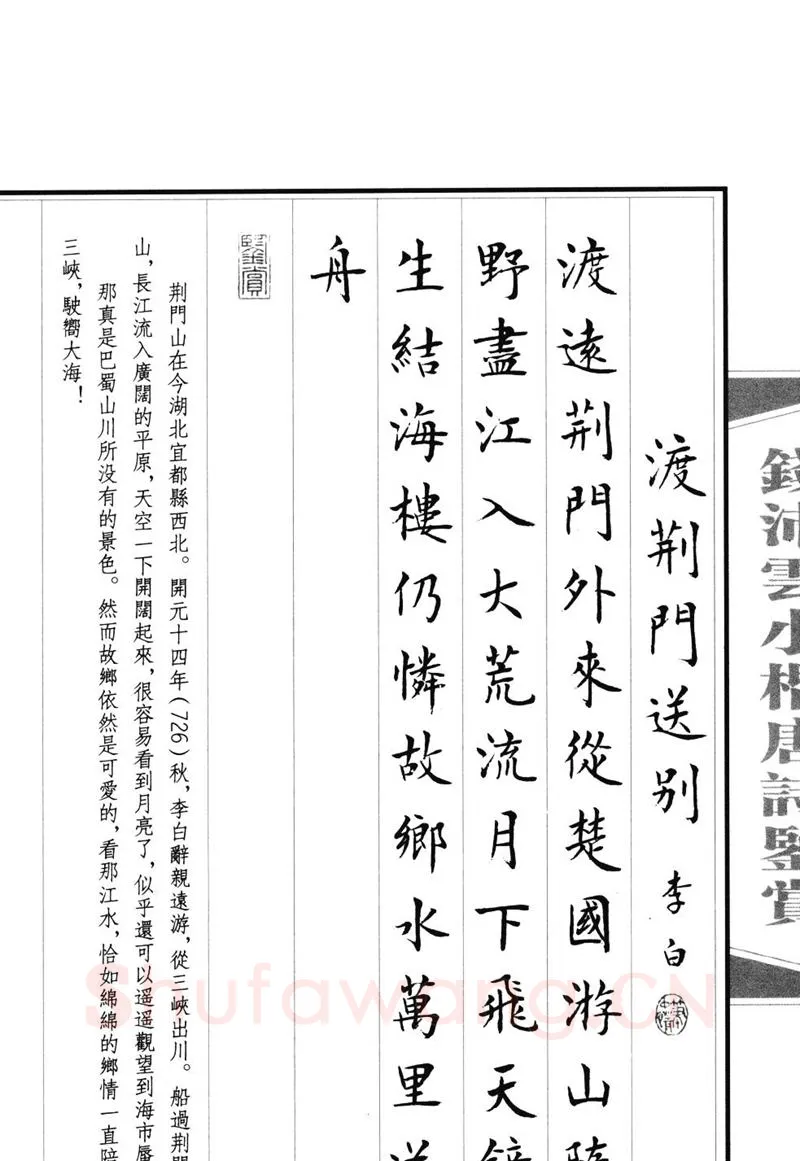 錢沛雲小楷唐詩鑒賞
渡荆門送别 李白
渡遠荆門外來從楚國游山
野盡江入大荒流月下飛天
生結海樓仍憐故鄉水萬里
舟
鑒賞
荆門山在今湖北宜都縣西北。開元十四年(726)秋,李白辭親遠游,從三峽出川。船過荆
山,長江流入廣闊的平原,天空一下開闊起來,很容易看到月亮了,似乎還可以遥遥觀望到海市
那真是巴蜀山川所没有的景色。然而故鄉依然是可愛的,看那江水,恰如綿綿的鄉情一直
三峽,駛嚮大海!
Shufawang.CN